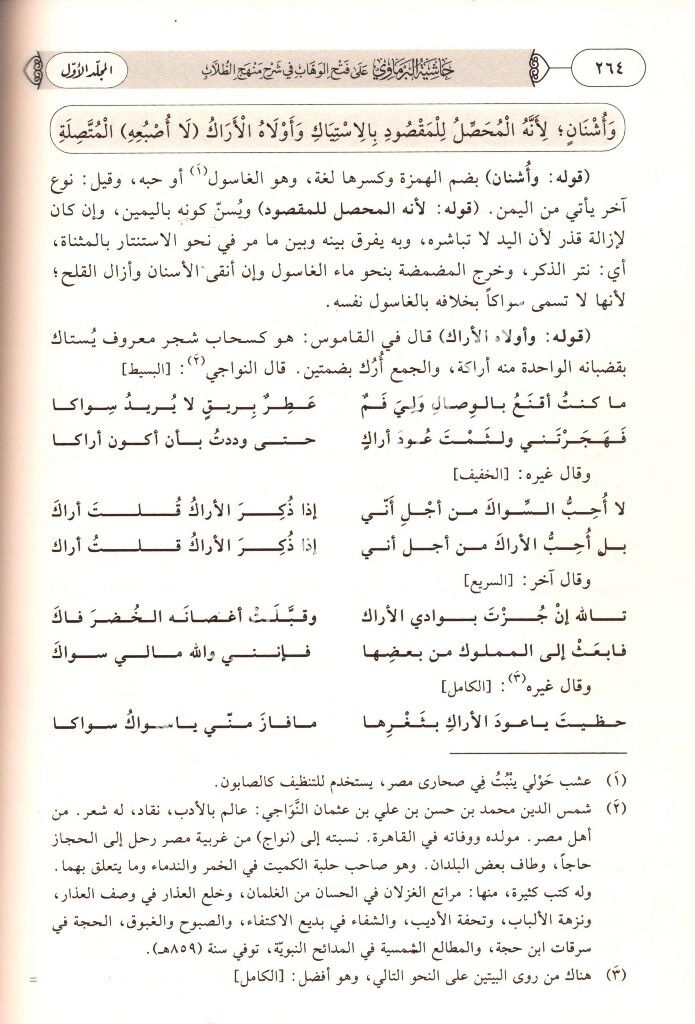 ٢٦٤
حاشية البرماوي على فتح الوهاب في شرح منهج الطلاب
المجلد الأول
وَأُشْنَانٍ؛ لِأَنَّهُ الْمُحَصِّلُ لِلْمَقْصُودِ بِالِاسْتِيَاكِ وَأَوْلَاهُ الْأَرَاكُ (لَا أُصْبُعِهِ) الْمُتَّصِلَةِ
(قوله: وأُشنان) بضم الهمزة وكسرها لغة، وهو الغاسول(١) أو حبه، وقيل: نوع
آخر يأتي من اليمن. (قوله: لأنه المحصل للمقصود) ويُسنّ كونه باليمين، وإن كان
لإزالة قذر لأن اليد لا تباشره، وبه يفرق بينه وبين ما مر في نحو الاستنتار بالمثناة،
أي: نتر الذكر، وخرج المضمضة بنحو ماء الغاسول وإن أنقى الأسنان وأزال القلح؛
لأنها لا تسمى سواكاً بخلافه بالغاسول نفسه.
(قوله: وأولاه الأراك) قال في القاموس: هو كسحاب شجر معروف يُستاك
بقضبانه الواحدة منه أراكة، والجمع أُرُك بضمتين. قال النواجي(٢): [البسيط]
ما كنتُ أقنَعُ بالوِصالِ وَلِيَ فَمٌ عَطِرٌ بِرِيقٍ لا يُرِيدُ سِواكا
فَهَجَرْتَني ولثَمْتَ عُودَ أراكٍ حتى وددتُ بأن أكون أراكا
وقال غيره: [الخفيف]
لا أُحِبُّ السِّواكَ من أجْلِ أنّي إذا ذُكِرَ الأراكُ قُلتَ أراكَ
بل أُحِبُّ الأراكَ من أجل أني إذا ذُكِرَ الأراكُ قلتُ أراك
وقال آخر: [السريع]
تالله إنْ جُزْتَ بوادي الأراك وقبَّلَتْ أغصانَه الخُضرَ فاكَ
فابعَثْ إلى المملوك من بعضِها فإنني والله مالي سواكَ
وقال غيره(٣): [الكامل]
حظيتَ ياعودَ الأراكِ بثَغْرِها مافازَ منّي ياسواكُ سواكا
(١) عشب حَوْلي ينْبُتُ فِي صحارى مصر، يستخدم للتنظيف كالصابون.
(٢) شمس الدين محمد بن حسن بن علي بن عثمان النَّوَاجي: عالم بالأدب، نقاد، له شعر. من
أهل مصر. مولده ووفاته في القاهرة. نسبته إلى (نواج) من غربية مصر رحل إلى الحجاز
حاجاً، وطاف بعض البلدان. وهو صاحب حلبة الكميت في الخمر والندماء وما يتعلق بهما.
وله كتب كثيرة، منها: مراتع الغزلان في الحسان من الغلمان، وخلع العذار في وصف العذار،
ونزهة الألباب، وتحفة الأديب، والشفاء في بديع الاكتفاء، والصبوح والغبوق، الحجة في
سرقات ابن حجة، والمطالع الشمسية في المدائح النبويّة، توفي سنة (٨٥٩هـ).
(٣) هناك من روى البيتين على النحو التالي، وهو أفضل: [الكامل] =